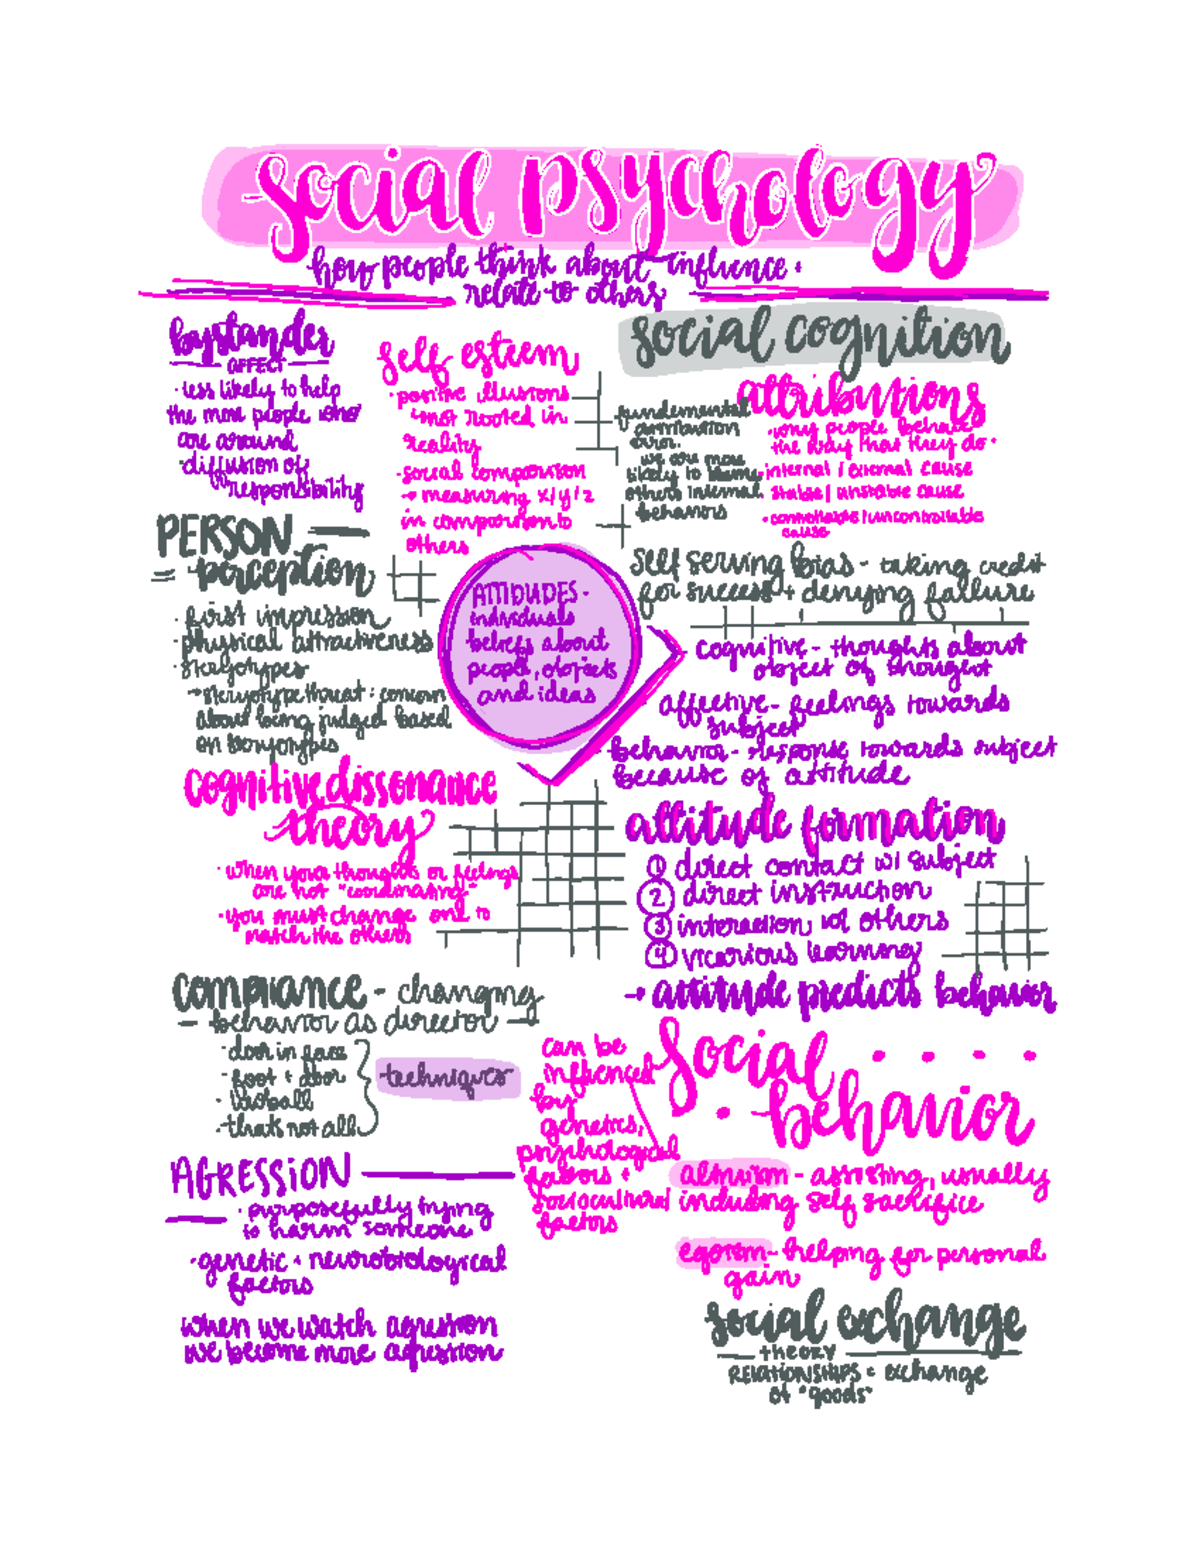 social psychology
how people think about influence +
relate to others
bystander
AFFECT
· less likely to help
the more people who
are around
· diffusion of
responsibility
self esteem
· positive illusions
not rooted in
reality
· social comparison
→ measuring x/y/z
in comparison to
others
social cognition
attributions
· why people behave
the way that they do
· internal / external cause
· stable / unstable cause
· controllable / uncontrollable
cause
fundemental
attribution
error:
we are more
likely to blame
others internal
behaviors
self serving bias - taking credit
for success + denying failure
PERSON
= perception
· first impression
· physical attractiveness
· stereotypes
→ stereotype threat: concern
about being judged based
on stereotypes
ATTIDUDES -
individuals
beliefs about
people, objects
and ideas
cognitive - thoughts about
object of thought
affective - feelings towards
subject
behavior - response towards subject
because of attitude
cognitive dissonance
theory
· when your thoughts or feelings
are not "coordinating"
· you must change one to
match the others
attitude formation
① direct contact w/ subject
② direct instruction
③ interaction w/ others
④ vicarious learning
→ attitude predicts behavior
compliance - changing
behavior as director
· door in face
· foot + door
·
· thats not all
techniques
social
behavior
can be
influenced
by
genetics,
psychological
factors +
sociocultural
factors
altruism - assisting, usually
including self sacrifice
egoism - helping for personal
gain
AGRESSION
· purposefully trying
to harm someone
· genetic + neurobiological
factors
when we watch agression
we become more agression
social exchange
theory
RELATIONSHIPS = exchange
of "goods"